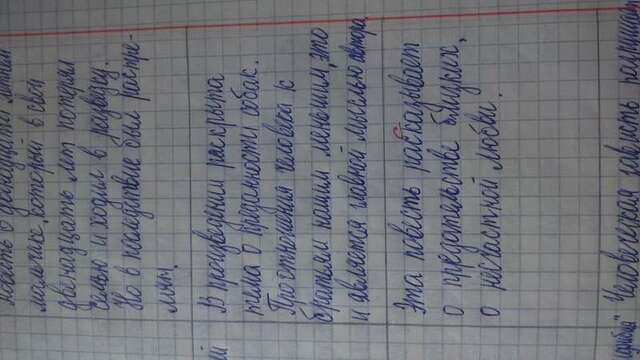 о двенадцати летнем
мальчик, который в свои
двенадцать лет потерял
семью и ходил в разведку.
Но в последствие был расстре-
лян.
В произведении раскрыта
тема о преданности собак.
Простношения человека к
братьям нашим меньшим, это
и является главной мыслью автора.
Эта повесть рассказывает
о предательстве близких,
о несчастной любви.
Человеческая зависть разрушает